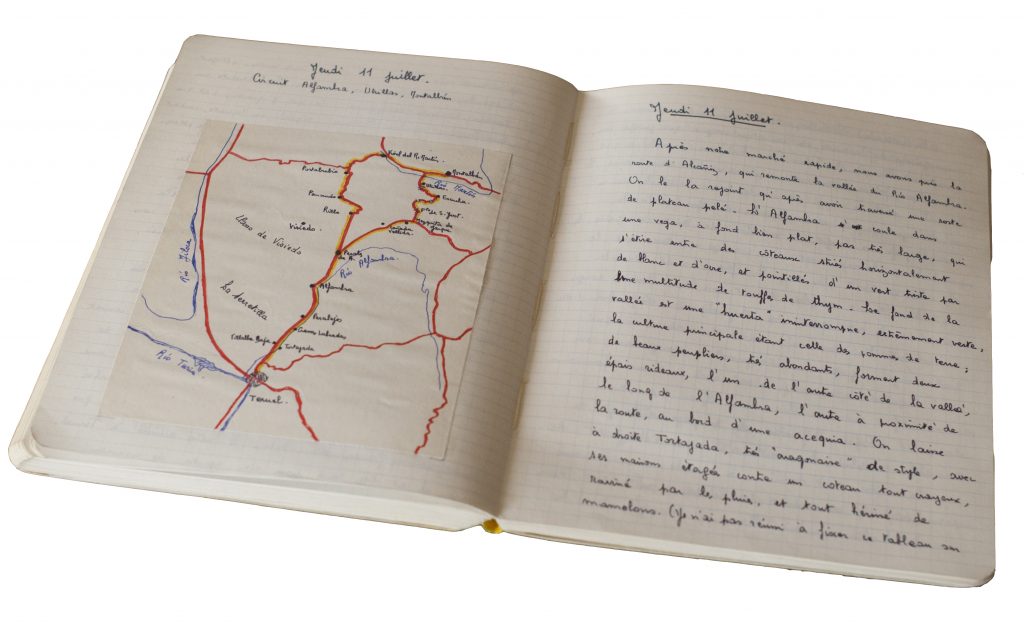 Jeudi 11 juillet.
Circuit Alfambra, Utrillas, Montalbán
Vivel del R. Martín
Montalbán
Río Martín
Portalrubio
Utrillas
Escucha
Pancrudo
Pto de S. Just.
Rillo
Mezquita de Jarque
Visiedo
Cañada Vellida
Llano de Visiedo
Perales de A.
Río Alfambra
Río Jiloca
Alfambra
La Serretilla
Peralejos
Cuevas Labradas
Villalba Baja
Tortajada
Río Turia
Teruel.
Jeudi 11 juillet.
Après notre marché rapide, nous avons pris la
route d'Alcañiz, qui remonte la vallée du Río Alfambra.
On ne la rejoint qu'après avoir traversé une sorte
de plateau pelé. L'Alfambra coule dans
une vega, à fond bien plat, pas très large, qui
s'étire entre des coteaux striés horizontalement
de blanc et d'ocre, et pointillés d'un vert triste par
une multitude de touffes de thym. Le fond de la
vallée est une "huerta" ininterrompue, extrêmement verte,
la culture principale étant celle des pommes de terre;
de beaux peupliers, très abondants, forment deux
épais rideaux, l'un de l'autre côté de la vallée,
le long de l'Alfambra, l'autre à proximité de
la route, au bord d'une acequia. On laisse
à droite Tortajada, très "aragonaise" de style, avec
ses maisons étagées contre un coteau tout crayeux,
raviné par les pluies, et tout hérissé de
mamelons. (Je n'ai pas réussi à fixer ce tableau sur